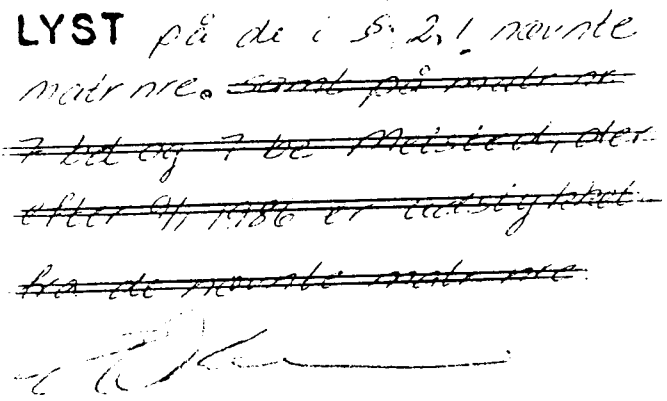 LYST på de i § 2,1 nævnte
matr nre. samt på matr nr.
7 bd og 7 be Meisted, der
efter 9/1 1986 er udstykket
fra de nævnte matr nre